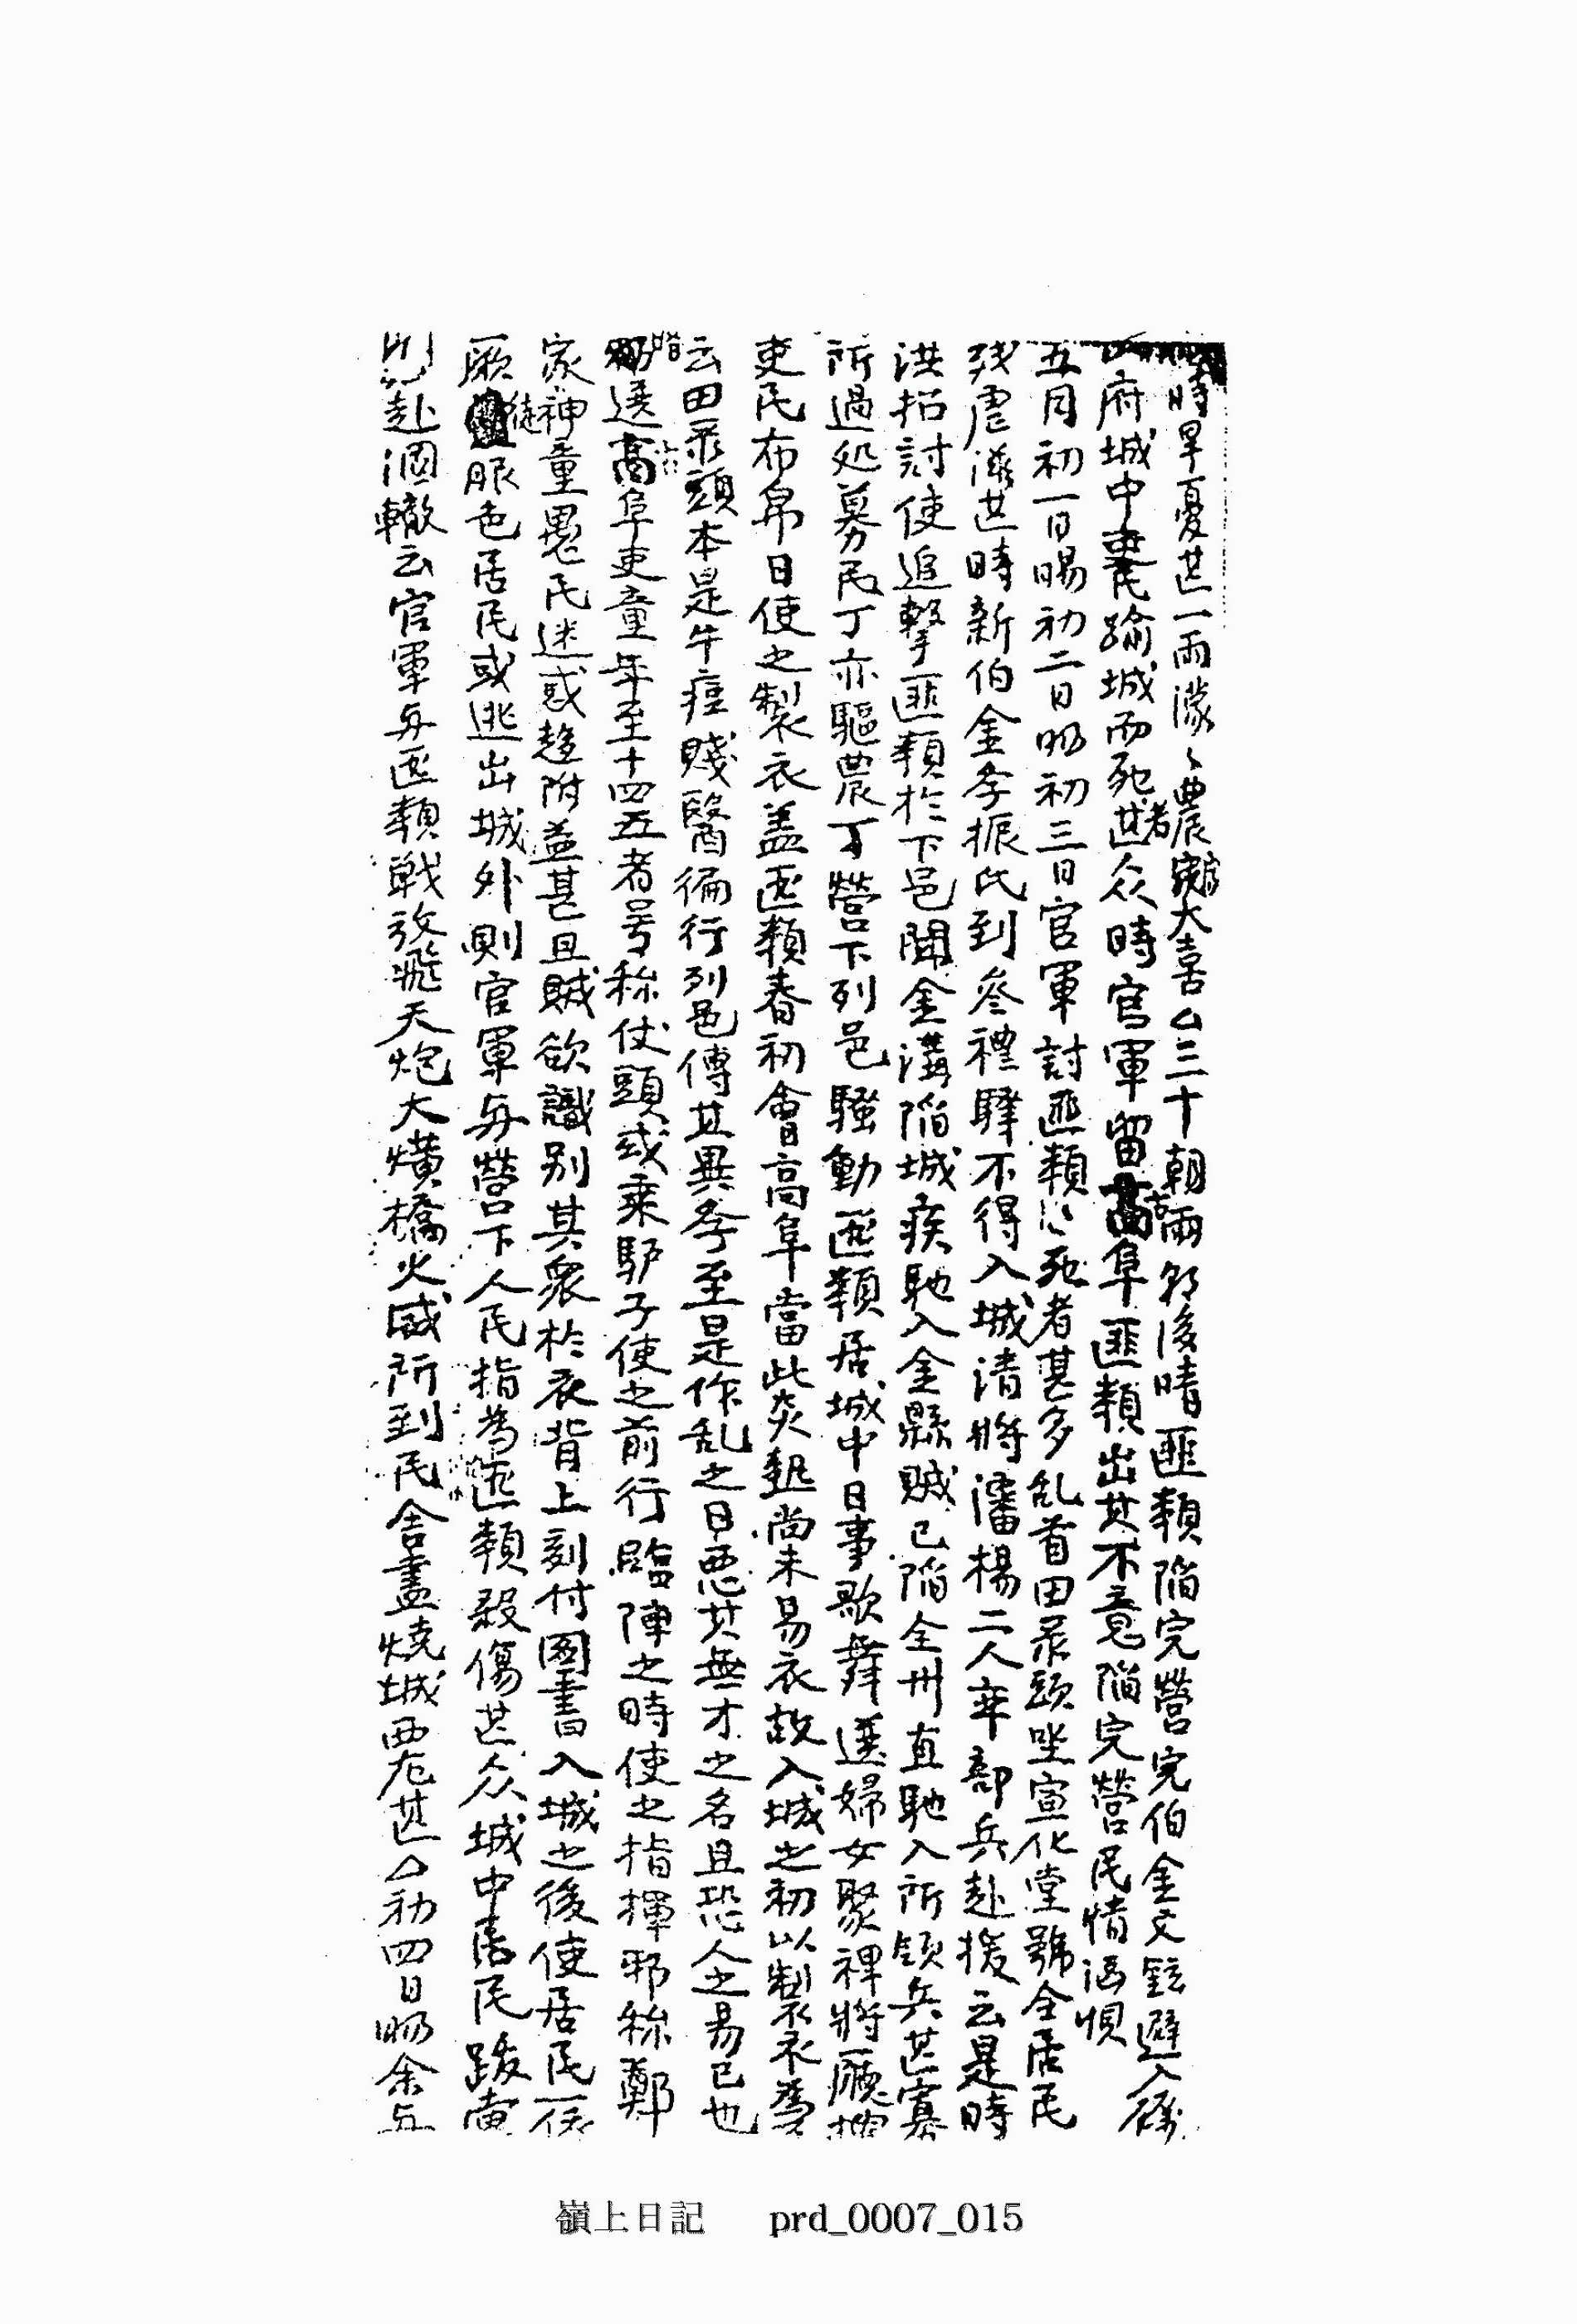 時旱憂甚一雨濛〻農家大喜△三十朝雨午後晴匪類陷完營完伯金文鉉避入礪
府城中吏民踰城而死者甚众時官軍留古阜匪類出其不意陷完營民情洶惧
五月初一日暘初二日暘初三日官軍討匪類〻死者甚多乱首田彔頭坐宣化堂號令居民
残虐滋甚時新伯金孝振氏到參禮驛不得入城淸將潘楊二人率部兵赴援云是時
洪招討使追擊匪類於下邑聞金溝陷城疾馳入金縣賊已陷全州直馳入所領兵甚寡
所過処募民丁亦驅農丁營下列邑騷動匪類居城中日事歌舞選婦女聚裨將廳
吏民布帛日使之製衣盖匪類春初會高阜當此炎熱尚未易衣故入城之初以製衣爲
云田彔頭本是牛痘賤醫徧行列邑傳其異孝至是作乱之日惡其無才之名且恐人之易己也
暗選古阜吏童年至十四五者号稱仗頭或乘驴子使之前行臨陣之時使之指揮邪稱鄭
家神童愚民迷惑趍附益甚且賊欲識别其衆於衣背上刻付圖書入城之後使居民一依
厥徒服色居民或逃出城外則官軍与營下人民指為匪類殺傷甚众城中居民跋
赴涸轍云官軍与匪類戰放飛天炮大熿橋火威所到民舍盡燒城西尤甚△初四日暘余与